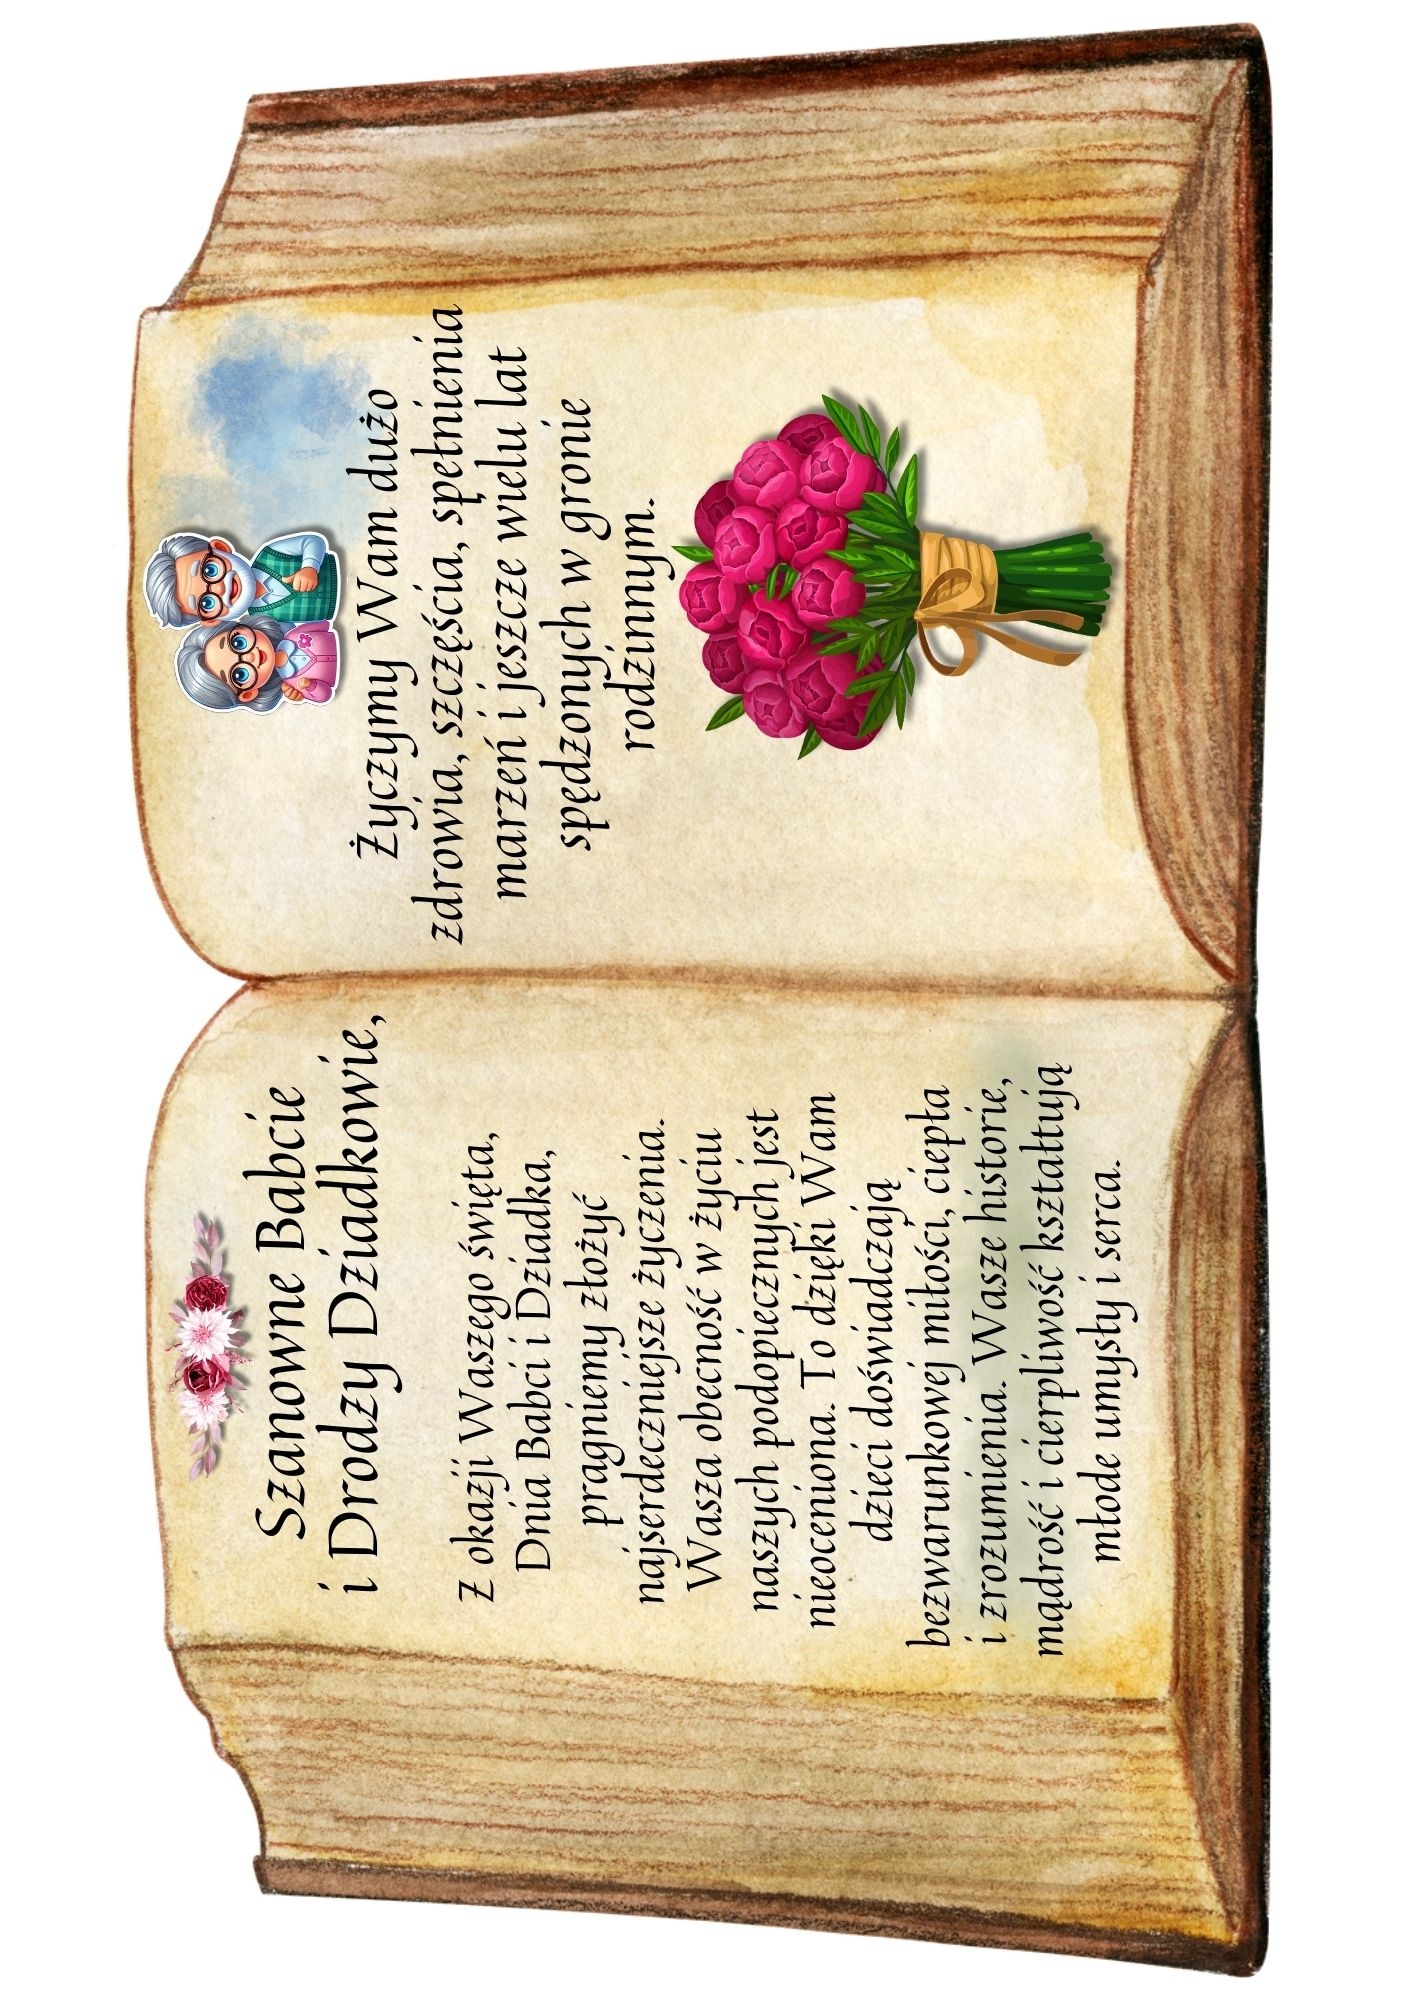 Szanowne Babcie
i Drodzy Dziadkowie,
Z okazji Waszego święta,
Dnia Babci i Dziadka,
pragniemy złożyć
najserdeczniejsze życzenia.
Wasza obecność w życiu
naszych podopiecznych jest
nieoceniona. To dzięki Wam
dzieci doświadczają
bezwarunkowej miłości, ciepła
i zrozumienia. Wasze historie,
mądrość i cierpliwość kształtują
młode umysły i serca.
Życzymy Wam dużo
zdrowia, szczęścia, spełnienia
marzeń i jeszcze wielu lat
spędzonych w gronie
rodzinnym.